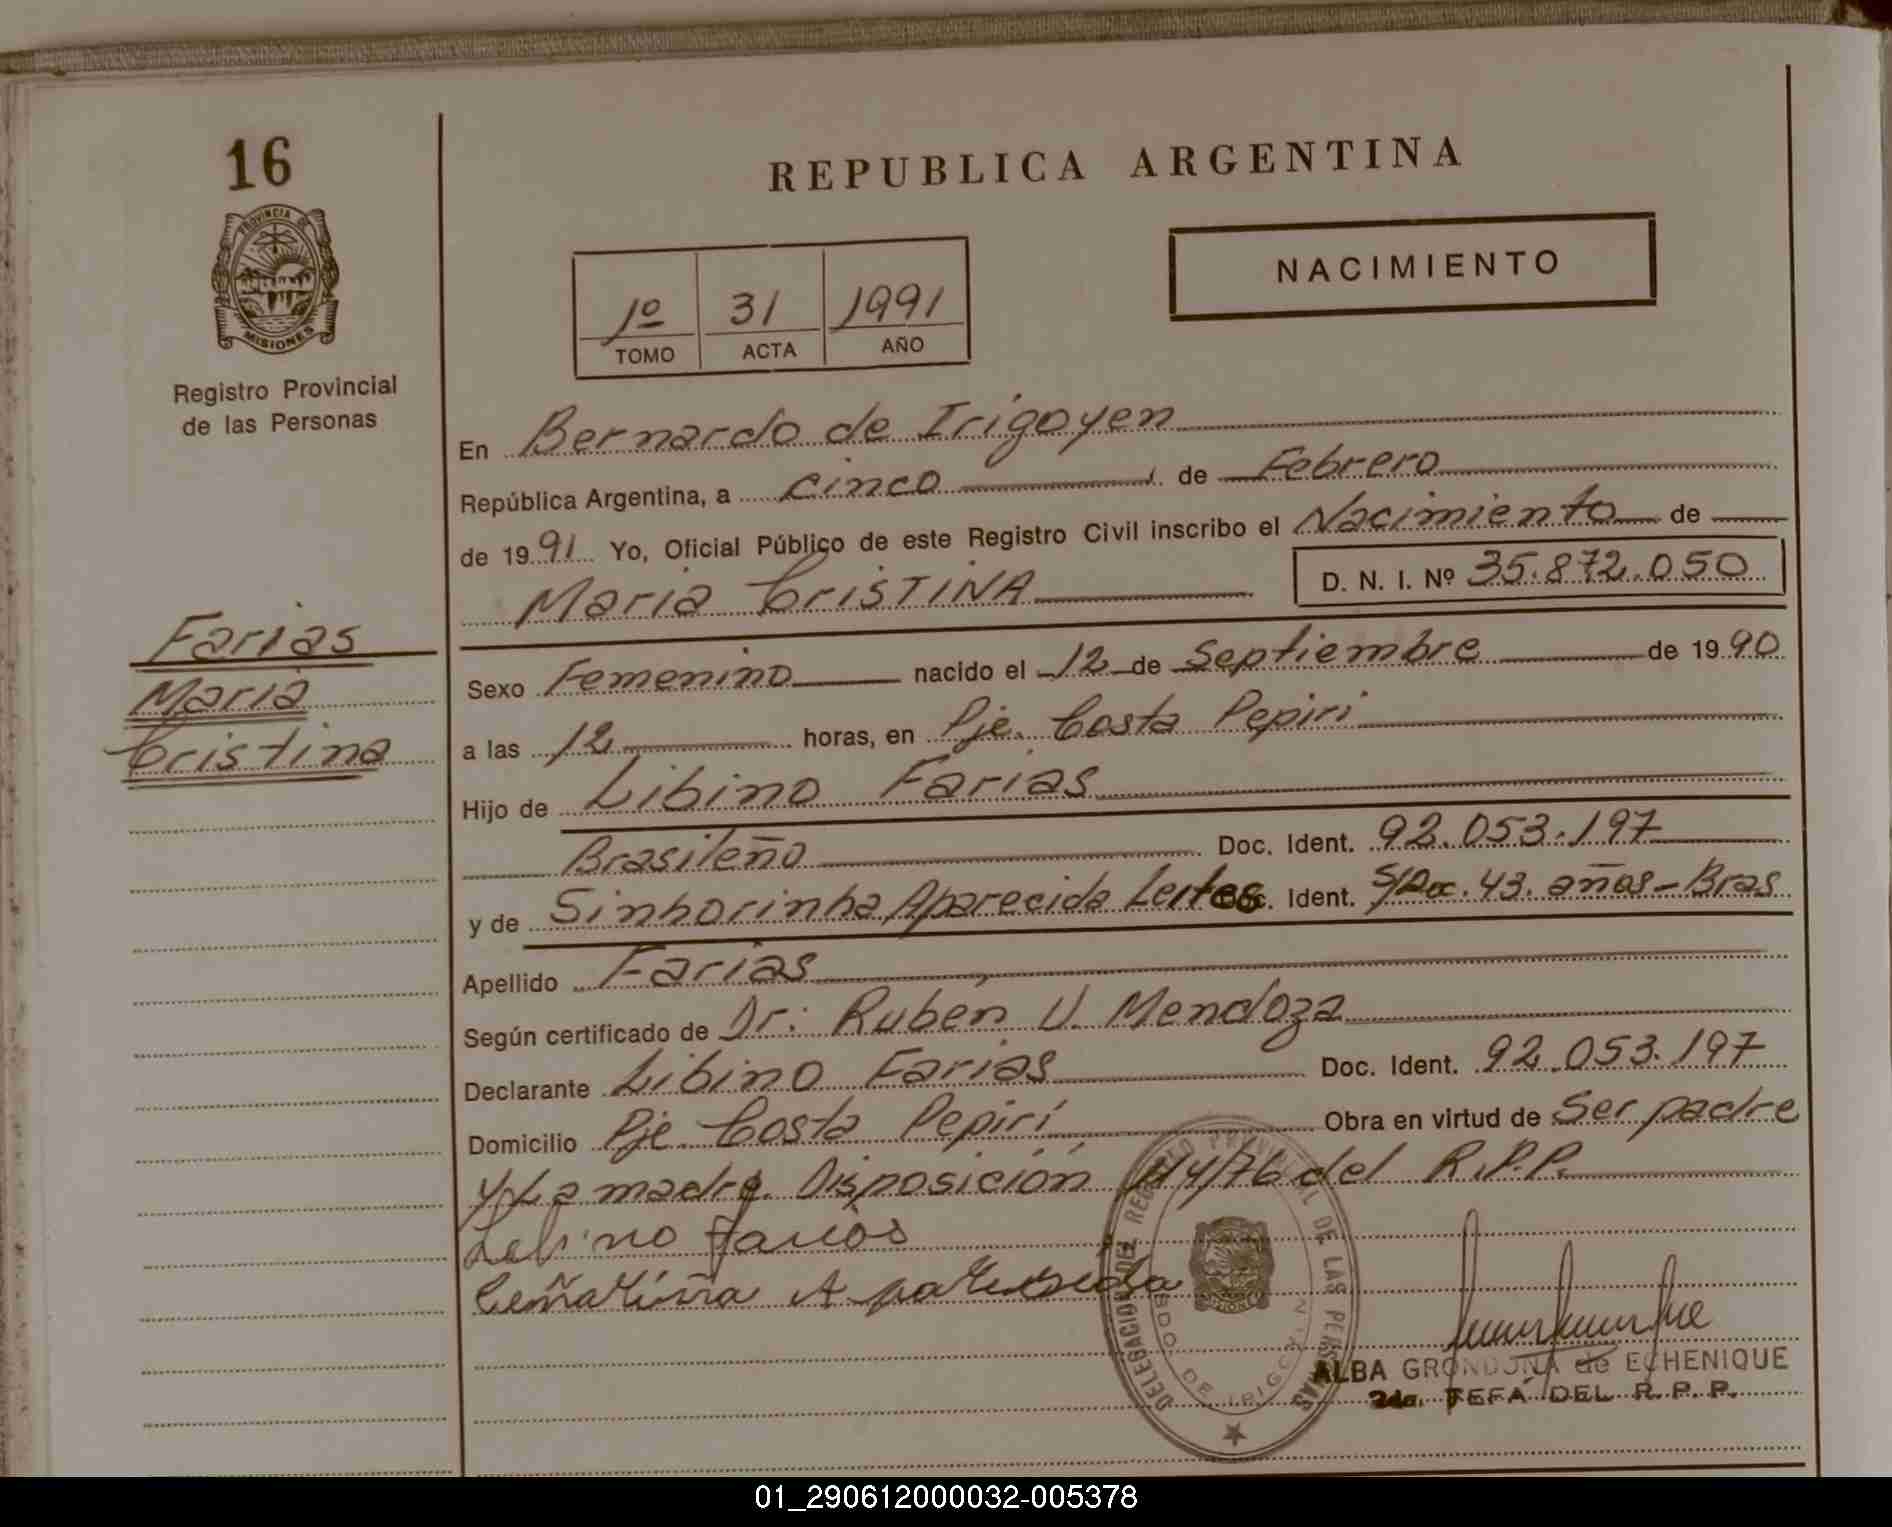 16
PROVINCIA DE
MISIONES
Registro Provincial
de las Personas
REPUBLICA ARGENTINA
NACIMIENTO
1º 31 1991
TOMO ACTA AÑO
En Bernardo de Irigoyen
República Argentina, a cinco de Febrero
de 1991 Yo, Oficial Público de este Registro Civil inscribo el Nacimiento de
Maria Cristina D. N. I. Nº 35.872.050
Farias
Maria
Cristina
Sexo Femenino nacido el 12 de Septiembre de 1990
a las 12 horas, en Pje. Costa Pepiri
Hijo de Libino Farias
Brasileño Doc. Ident. 92.053.197
y de Sinhorinha Aparecida Leites Doc. Ident. S/Doc. 43. años - Bras
Apellido Farias
Según certificado de Dr. Rubén U. Mendoza
Declarante Libino Farias Doc. Ident. 92.053.197
Domicilio Pje. Costa Pepirí Obra en virtud de Ser padre
y La madre. Disposición 44/76 del R.P.P.
Farias
A
DELEGACION DEL REGISTRO PROVINCIAL DE LAS PERSONAS
BDO. DE IRIGOYEN
ALBA GRONDONA de ECHENIQUE
2da. JEFA DEL R. P. P.
01_290612000032-005378